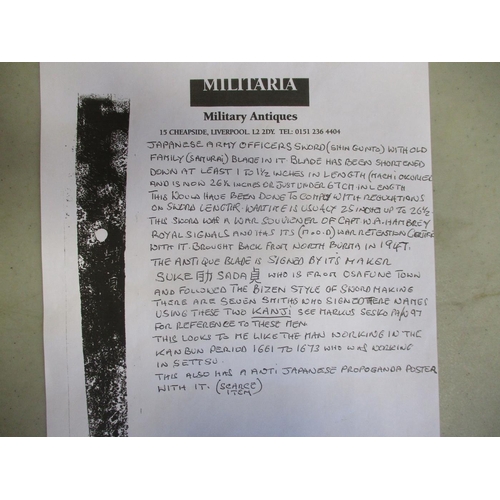 MILITARIA
Military Antiques
15 CHEAPSIDE, LIVERPOOL. L2 2DY. TEL: 0151 236 4404
JAPANESE ARMY OFFICERS SWORD (SHIN GUNTO) WITH OLD
FAMILY (SAMURAI) BLADE IN IT BLADE HAS BEEN SHORTENED
DOWN AT LEAST 1 TO 1½ INCHES IN LENGTH (MACHI OKURI)
AND IS NOW 26⅜ INCHES OR JUST UNDER 67CM IN LENGTH
THIS WOULD HAVE BEEN DONE TO COMPLY WITH REGULATIONS
ON SWORD LENGTH. WARTIME IS USUALLY 25 INCHES UP TO 26½
THIS SWORD WAS A WAR SOUVIENER OF CAPT W.A. HAMBREY
ROYAL SIGNALS AND HAS ITS (M.O.D) WAR RETENTION
WITH IT. BROUGHT BACK FROM NORTH BURMA IN 1947.
THE ANTIQUE BLADE IS SIGNED BY ITS MAKER
SUKE 助 SADA 貞 WHO IS FROM OSAFUNE TOWN
AND FOLLOWED THE BIZEN STYLE OF SWORD MAKING
THERE ARE SEVEN SMITHS WHO SIGNED THERE NAMES
USING THESE TWO KANJI SEE MARKUS SESKO
FOR REFERENCE TO THESE MEN.
THIS LOOKS TO ME LIKE THE MAN WORKING IN THE
KANBUN PERIOD 1661 TO 1673 WHO WAS WORKING
IN SETTSU.
THIS ALSO HAS A ANTI JAPANESE PROPOGANDA POSTER
WITH IT. (SCARCE ITEM)